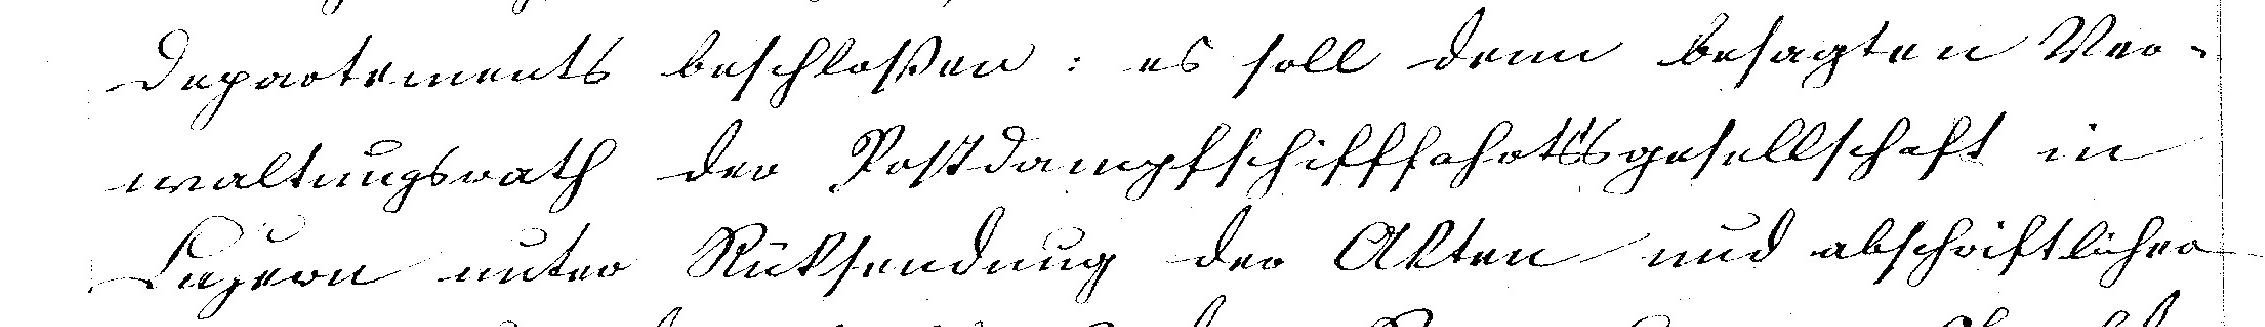 Departements beschloßen: es soll dem besagten Ver-
waltungsrath der Postdampfschifffahrtsgesellschaft in
Luzern unter Rüksendung der Akten und abschriftlicher